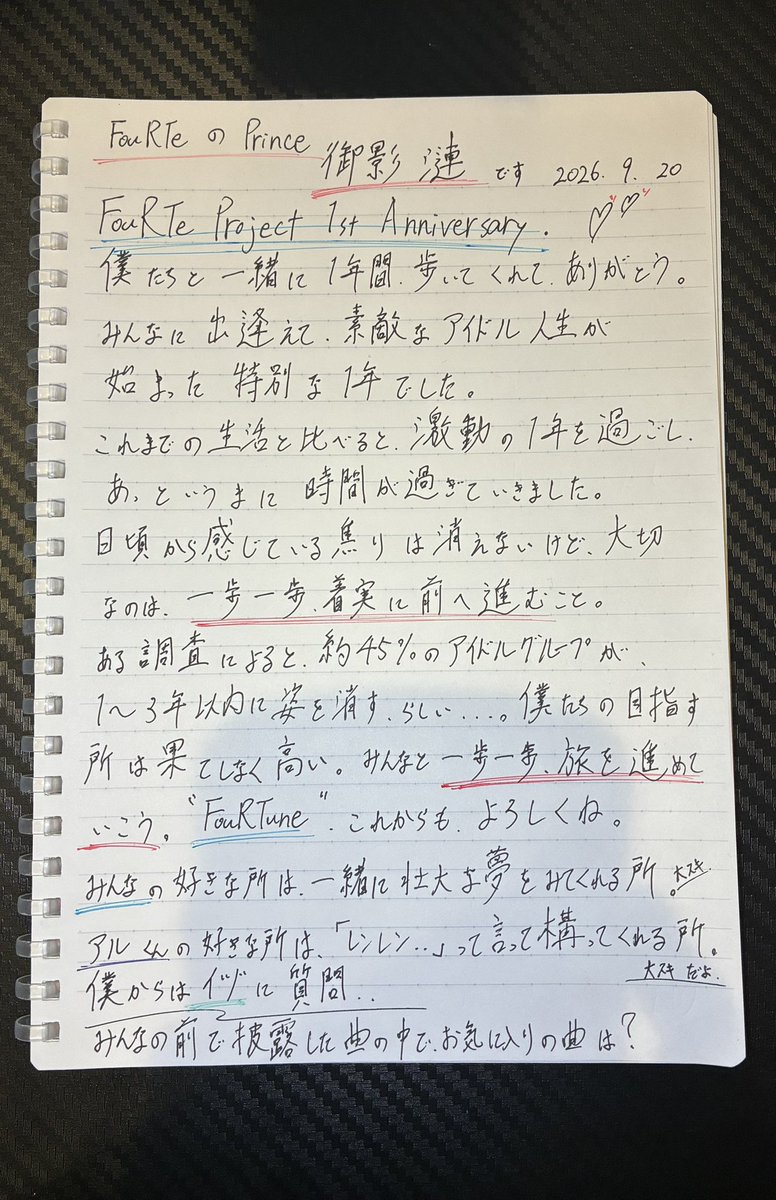 FouRTe の Prince 御影 漣 です 2026. 9. 20
FouRTe Project 1st Anniversary.
僕たちと一緒に1年間、歩いてくれて、ありがとう。
みんなに出逢えて、素敵なアイドル人生が
始まった特別な1年でした。
これまでの生活と比べると、激動の1年を過ごし、
あっというまに時間が過ぎていきました。
日頃から感じている焦りは消えないけど、大切
なのは、一歩一歩、着実に前へ進むこと。
ある調査によると、約45%のアイドルグループが、
1〜3年以内に姿を消す、らしい....。僕たちの目指す
所は果てしなく高い。みんなと一歩一歩、旅を進めて
いこう。"FouRTune"、これからも、よろしくね。
みんなの好きな所は、一緒に壮大な夢をみてくれる所。大スキ
アルくんの好きな所は、「レンレン..」って言って構ってくれる所。
大スキだよ.
僕からはイヅに質問..
みんなの前で披露した曲の中で、お気に入りの曲は?